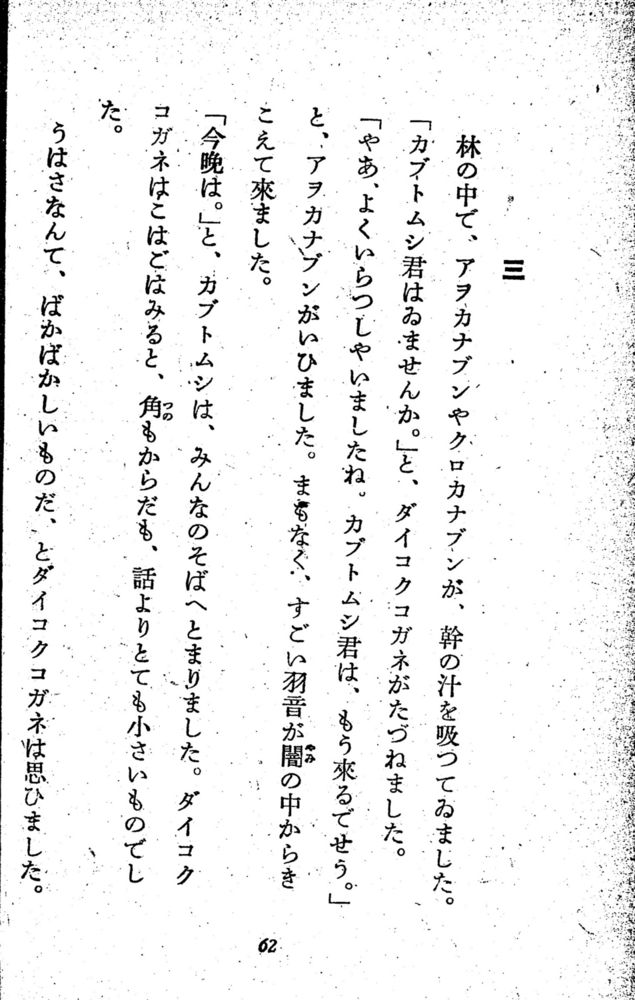 三
林の中で、アヲカナブンやクロカナブンが、幹の汁を吸つてゐました。
「カブトムシ君はゐませんか。」と、ダイコクコガネがたづねました。
「やあ、よくいらつしやいましたね。カブトムシ君は、もう來るでせう。」
と、アヲカナブンがいひました。まもなく、すごい羽音が闇の中からき
やみ
こえて來ました。
「今晩は。」と、カブトムシは、みんなのそばへとまりました。ダイコク
コガネはこはごはみると、角もからだも、話よりとても小さいものでし
つの
た。
うはさなんて、ばかばかしいものだ、とダイコクコガネは思ひました。
62